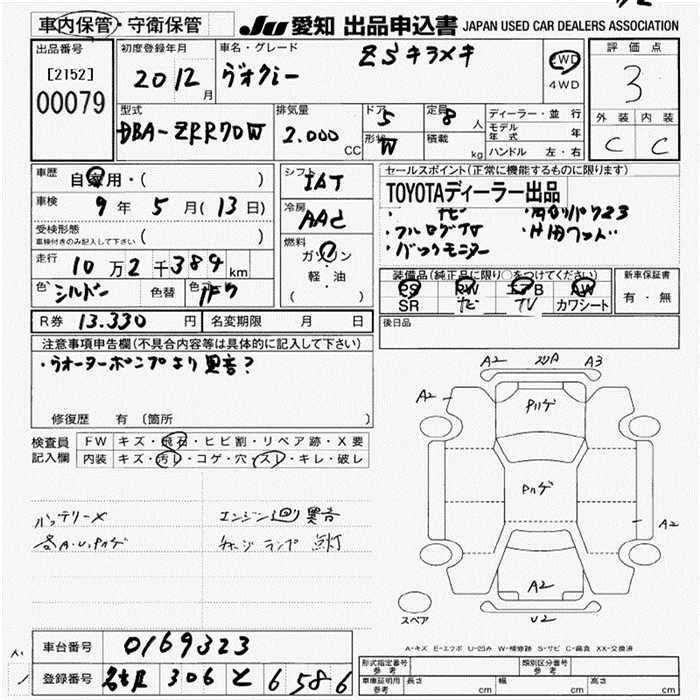 車内保管・守衛保管
JU 愛知 出品申込書 JAPAN USED CAR DEALERS ASSOCIATION
出品番号
[2152]
00079
初度登録年月
2012月
車名・グレード
ZSキラメキ
ヴォクシー
2WD
4WD
評価点
3
外装 内装
C C
型式
DBA-ZRR70W
排気量
2.000 CC
ドア
5
形状
W
定員
8人
積載
kg
ディーラー・並行
モデル年式 年
ハンドル 左・右
車歴
自家用・( )
車検
9年5月(13日)
受検形態
車検付きのみ記入して下さい ( )
走行
10万2千389km
色 シルバー 色替 色コ 1F7
シフト
IAT
冷房
AAC
燃料
ガソリン
軽・油
( )
セールスポイント(正常に機能するものに限ります)
TOYOTAディーラー出品
・ナビ
・フルセグTV
・バックモニター
装備品(純正品に限り○をつけてください)
PS PW エアB AW
SR ナビ TV カワシート
新車保証書
有・無
R券 13.330円 名変期限 月 日
後日品
注意事項申告欄(不具合内容等は具体的に記入して下さい)
・ウォーターポンプより異音?
修復歴 有 (箇所
検査員
記入欄
FW キズ・飛石・ヒビ割・リペア跡・X要
内装 キズ・汚レ・コゲ・穴・スレ・キレ・破レ
バッテリーX
各A.U.Pハゲ
エンジン廻り異音
チャージランプ点灯
A2 A3
A2
Pハゲ
Pハゲ
A2
A2
U2
スペア
A-キズ E-エクボ U-凹み W-補修跡 S-サビ C-腐食 XX-交換済
車台番号 0169323
登録番号 306 と 6586
形式指定番号
参考
類別区分番号
参考
車庫証明用
参考
長さ cm 幅 cm 高さ cm